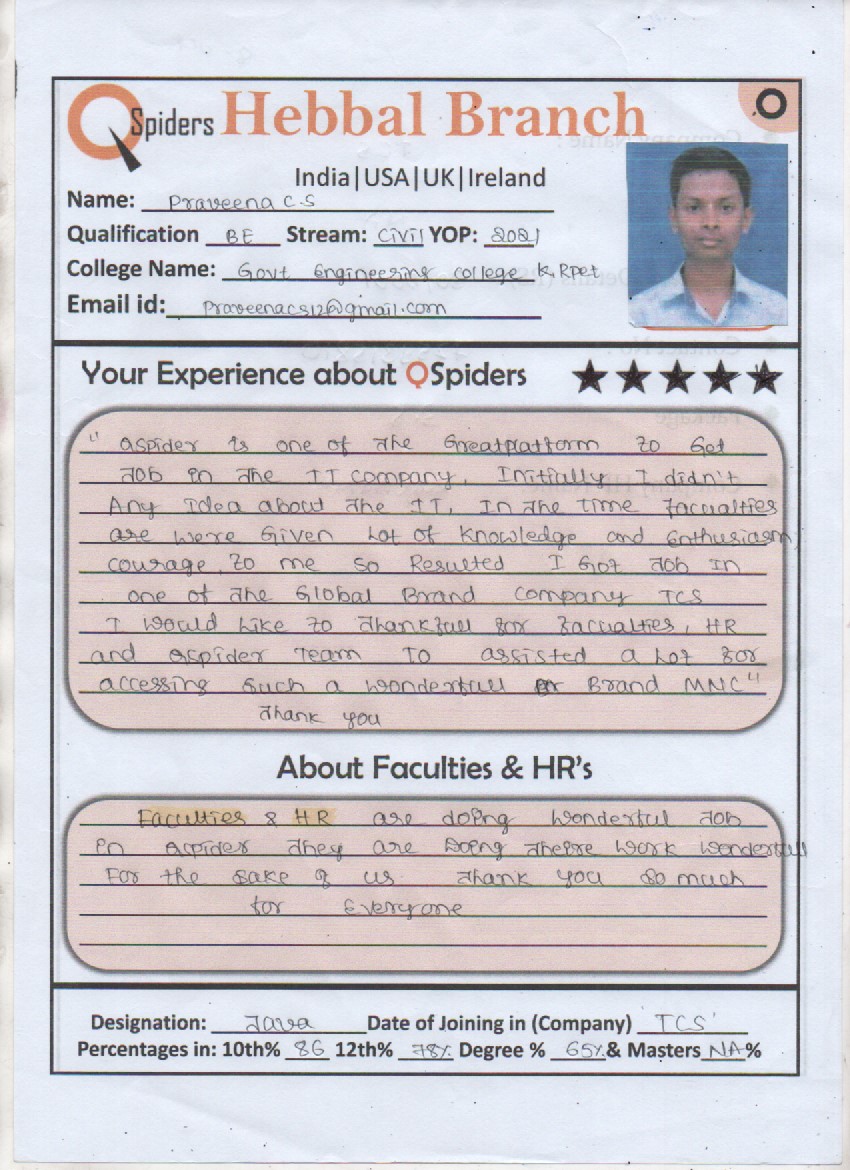 QSpiders Hebbal Branch
India|USA|UK|Ireland
Name: Praveena C.S
Qualification BE Stream: Civil YOP: 2021
College Name: Govt Engineering college K,Rpet
Email id: praveenacs12@gmail.com
Your Experience about QSpiders
" Qspider is one of the Greatplatform to Get
Job in the IT company, Initially I didn't
Any Idea about the IT, In the time facualties
are were Given Lot of Knowledge and Enthusiasm
courage, to me so Resulted I Got Job In
one of the Global Brand company TCS
I would Like to thankfull for facualties, HR
and Qspider Team To assisted a Lot for
accessing such a wonderfull Brand MNC"
Thank you
About Faculties & HR's
Faculties & HR are doing wonderful Job
in Qpider they are Doing work wonderfull
For the sake of us Thank you so much
for Everyone
Designation: Java Date of Joining in (Company) TCS
Percentages in: 10th% 86 12th% 78% Degree % 65% & Masters NA %